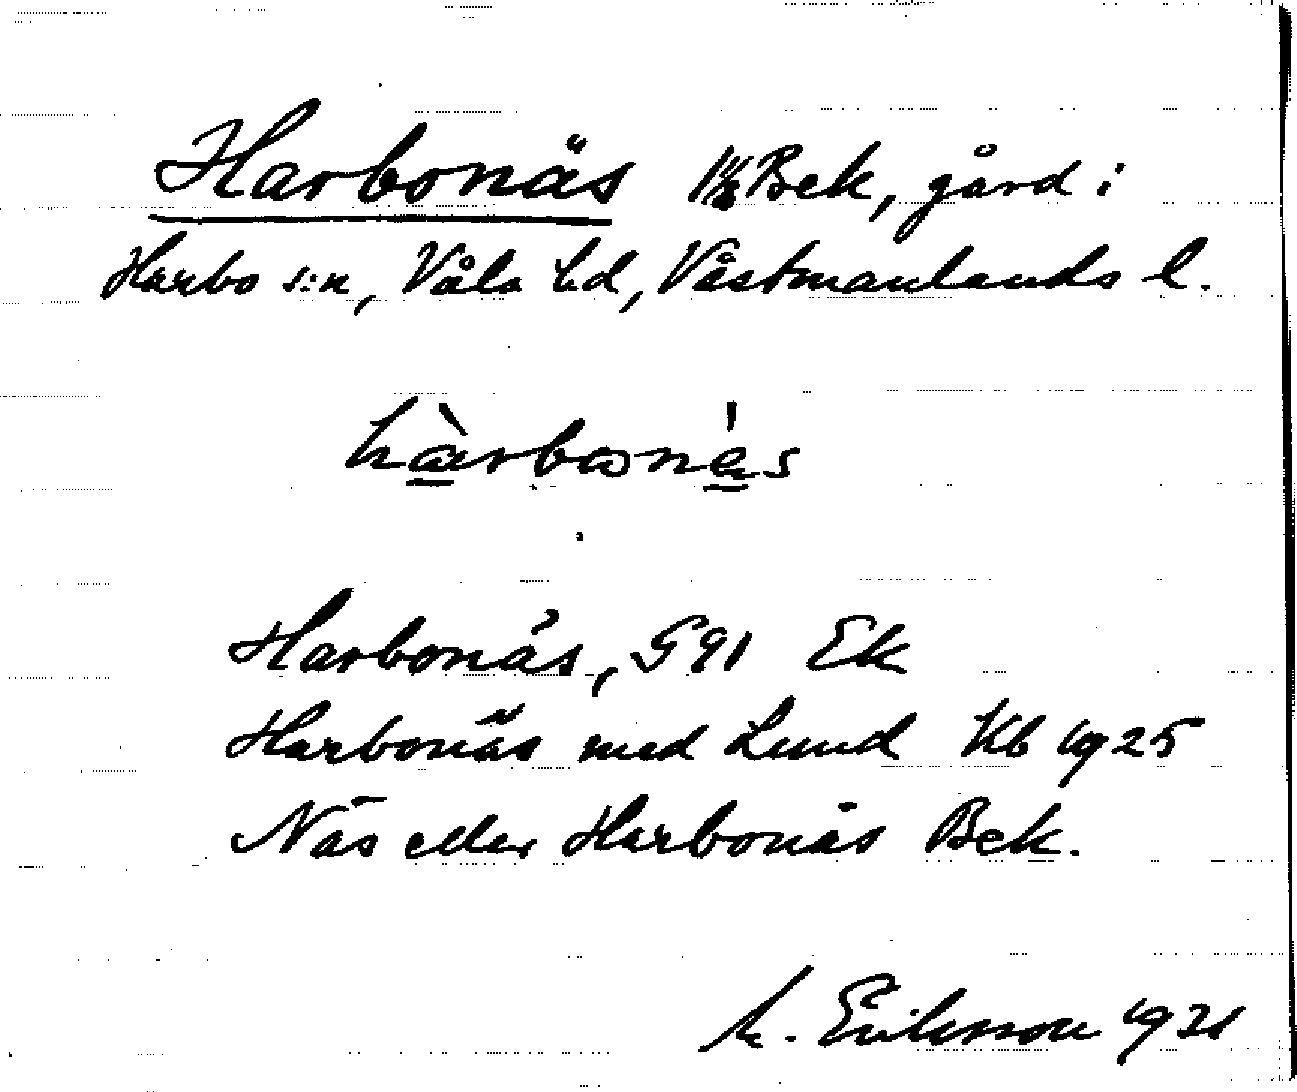 Harbonäs Bek, gård i
Harbo s:n, Våla hd, Västmanlands l.
Harbonäs, G 91 Ek
Harbonäs med Lund Kb 1925
Näs eller Harbonäs Bek.
M. Eriksson 1931